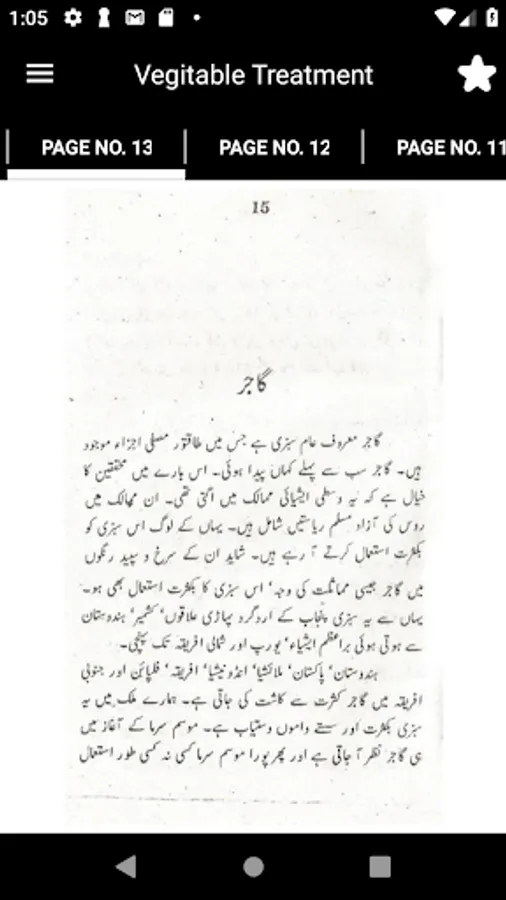 1:05
Vegitable Treatment
PAGE NO. 13 PAGE NO. 12 PAGE NO. 11
15
گاجر
گاجر معروف عام سبزی ہے جس میں طاقتور مصلی اجزاء موجود
ہیں۔ گاجر سب سے پہلے کہاں پیدا ہوئی۔ اس بارے میں محققین کا
خیال ہے کہ یہ وسطی ایشیائی ممالک میں اگتی تھی۔ ان ممالک میں
روس کی آزاد مسلم ریاستیں شامل ہیں۔ یہاں کے لوگ اس سبزی کو
بکثرت استعمال کرتے آ رہے ہیں۔ شاید ان کے سرخ و سپید رنگوں
میں گاجر جیسی مماثلت کی وجہ‘ اس سبزی کا بکثرت استعمال بھی ہو۔
یہاں سے یہ سبزی پنجاب کے اردگرد پہاڑی علاقوں‘ کشمیر‘ ہندوستان
سے ہوتی ہوئی براعظم ایشیاء‘ یورپ اور شمالی افریقہ تک پہنچی۔
ہندوستان‘ پاکستان‘ ملائشیا‘ انڈونیشیا‘ افریقہ‘ فلپائن اور جنوبی
افریقہ میں گاجر کثرت سے کاشت کی جاتی ہے۔ ہمارے ملک میں یہ
سبزی بکثرت اور سستے داموں دستیاب ہے۔ موسم سرما کے آغاز میں
ہی گاجر نظر آ جاتی ہے اور پھر پورا موسم سرما کسی نہ کسی طور استعمال